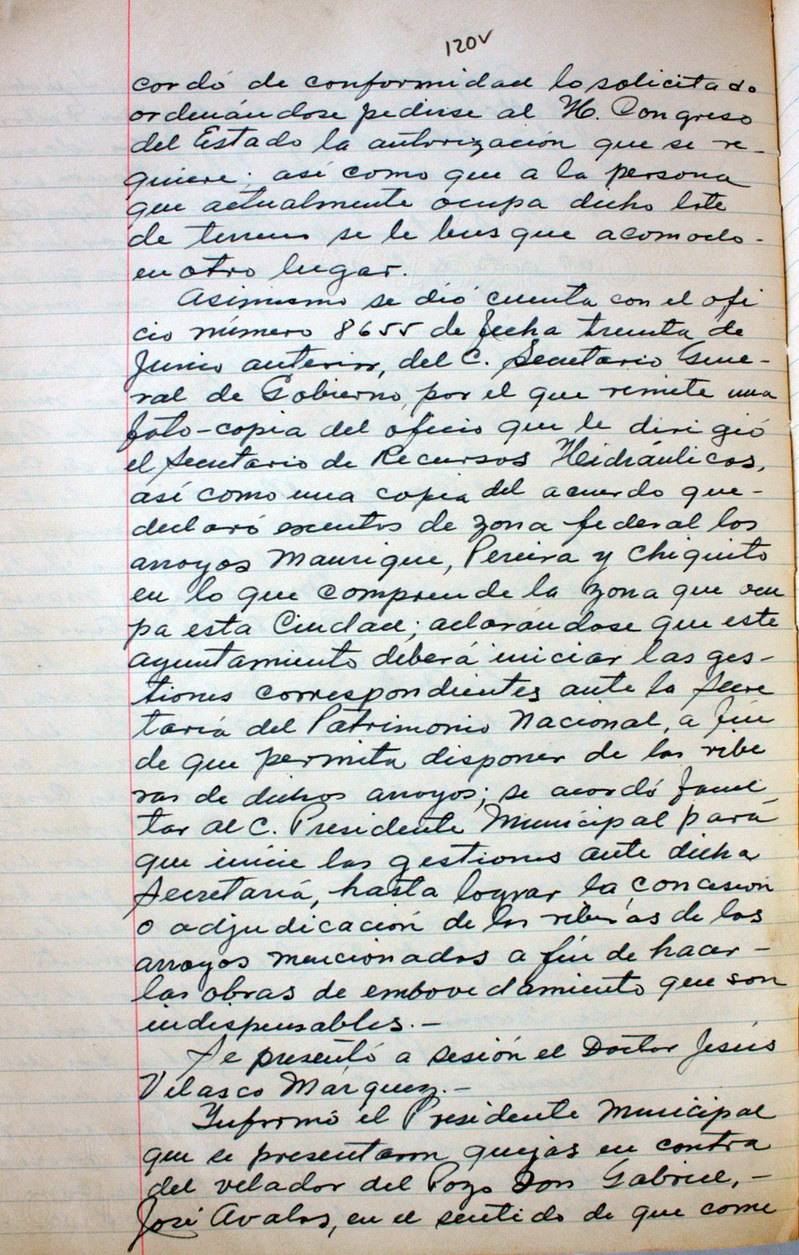 120V
cordó de conformidad lo solicitado
ordenándose pedirse al H. Congreso
del Estado la autorización que se re-
quiere; así como que a la persona
que actualmente ocupa dicho lote
de terreno se le busque acomodo-
en otro lugar.
Asimismo se dió cuenta con el ofi
cio número 8655 de fecha treinta de
Junio anterior, del C. Secretario Gene-
ral de Gobierno, por el que remite una
foto-copia del oficio que le dirigió
el Secretario de Recursos Hidráulicos,
así como una copia del acuerdo que-
declaró exentos de zona federal los
arroyos Manrique, Pereira y Chiquito
en lo que comprende la zona que ocu
pa esta Ciudad; aclarándose que este
ayuntamiento deberá iniciar las ges-
tiones correspondientes ante la Secre
taría del Patrimonio Nacional, a fin
de que permita disponer de las ribe
ras de dichos arroyos; se acordó facul
tar al C. Presidente Municipal para
que inicie las gestiones ante dicha
Secretaría, hasta lograr la concesión
o adjudicación de las riberas de los
arroyos mencionados a fin de hacer-
las obras de embovedamiento que son
indispensables.-
Se presentó a sesión el Doctor Jesús
Velasco Márquez.-
Informó el Presidente Municipal
que se presentaron quejas en contra
del velador del Pozo Don Gabriel,-
José Avalos, en el sentido de que come